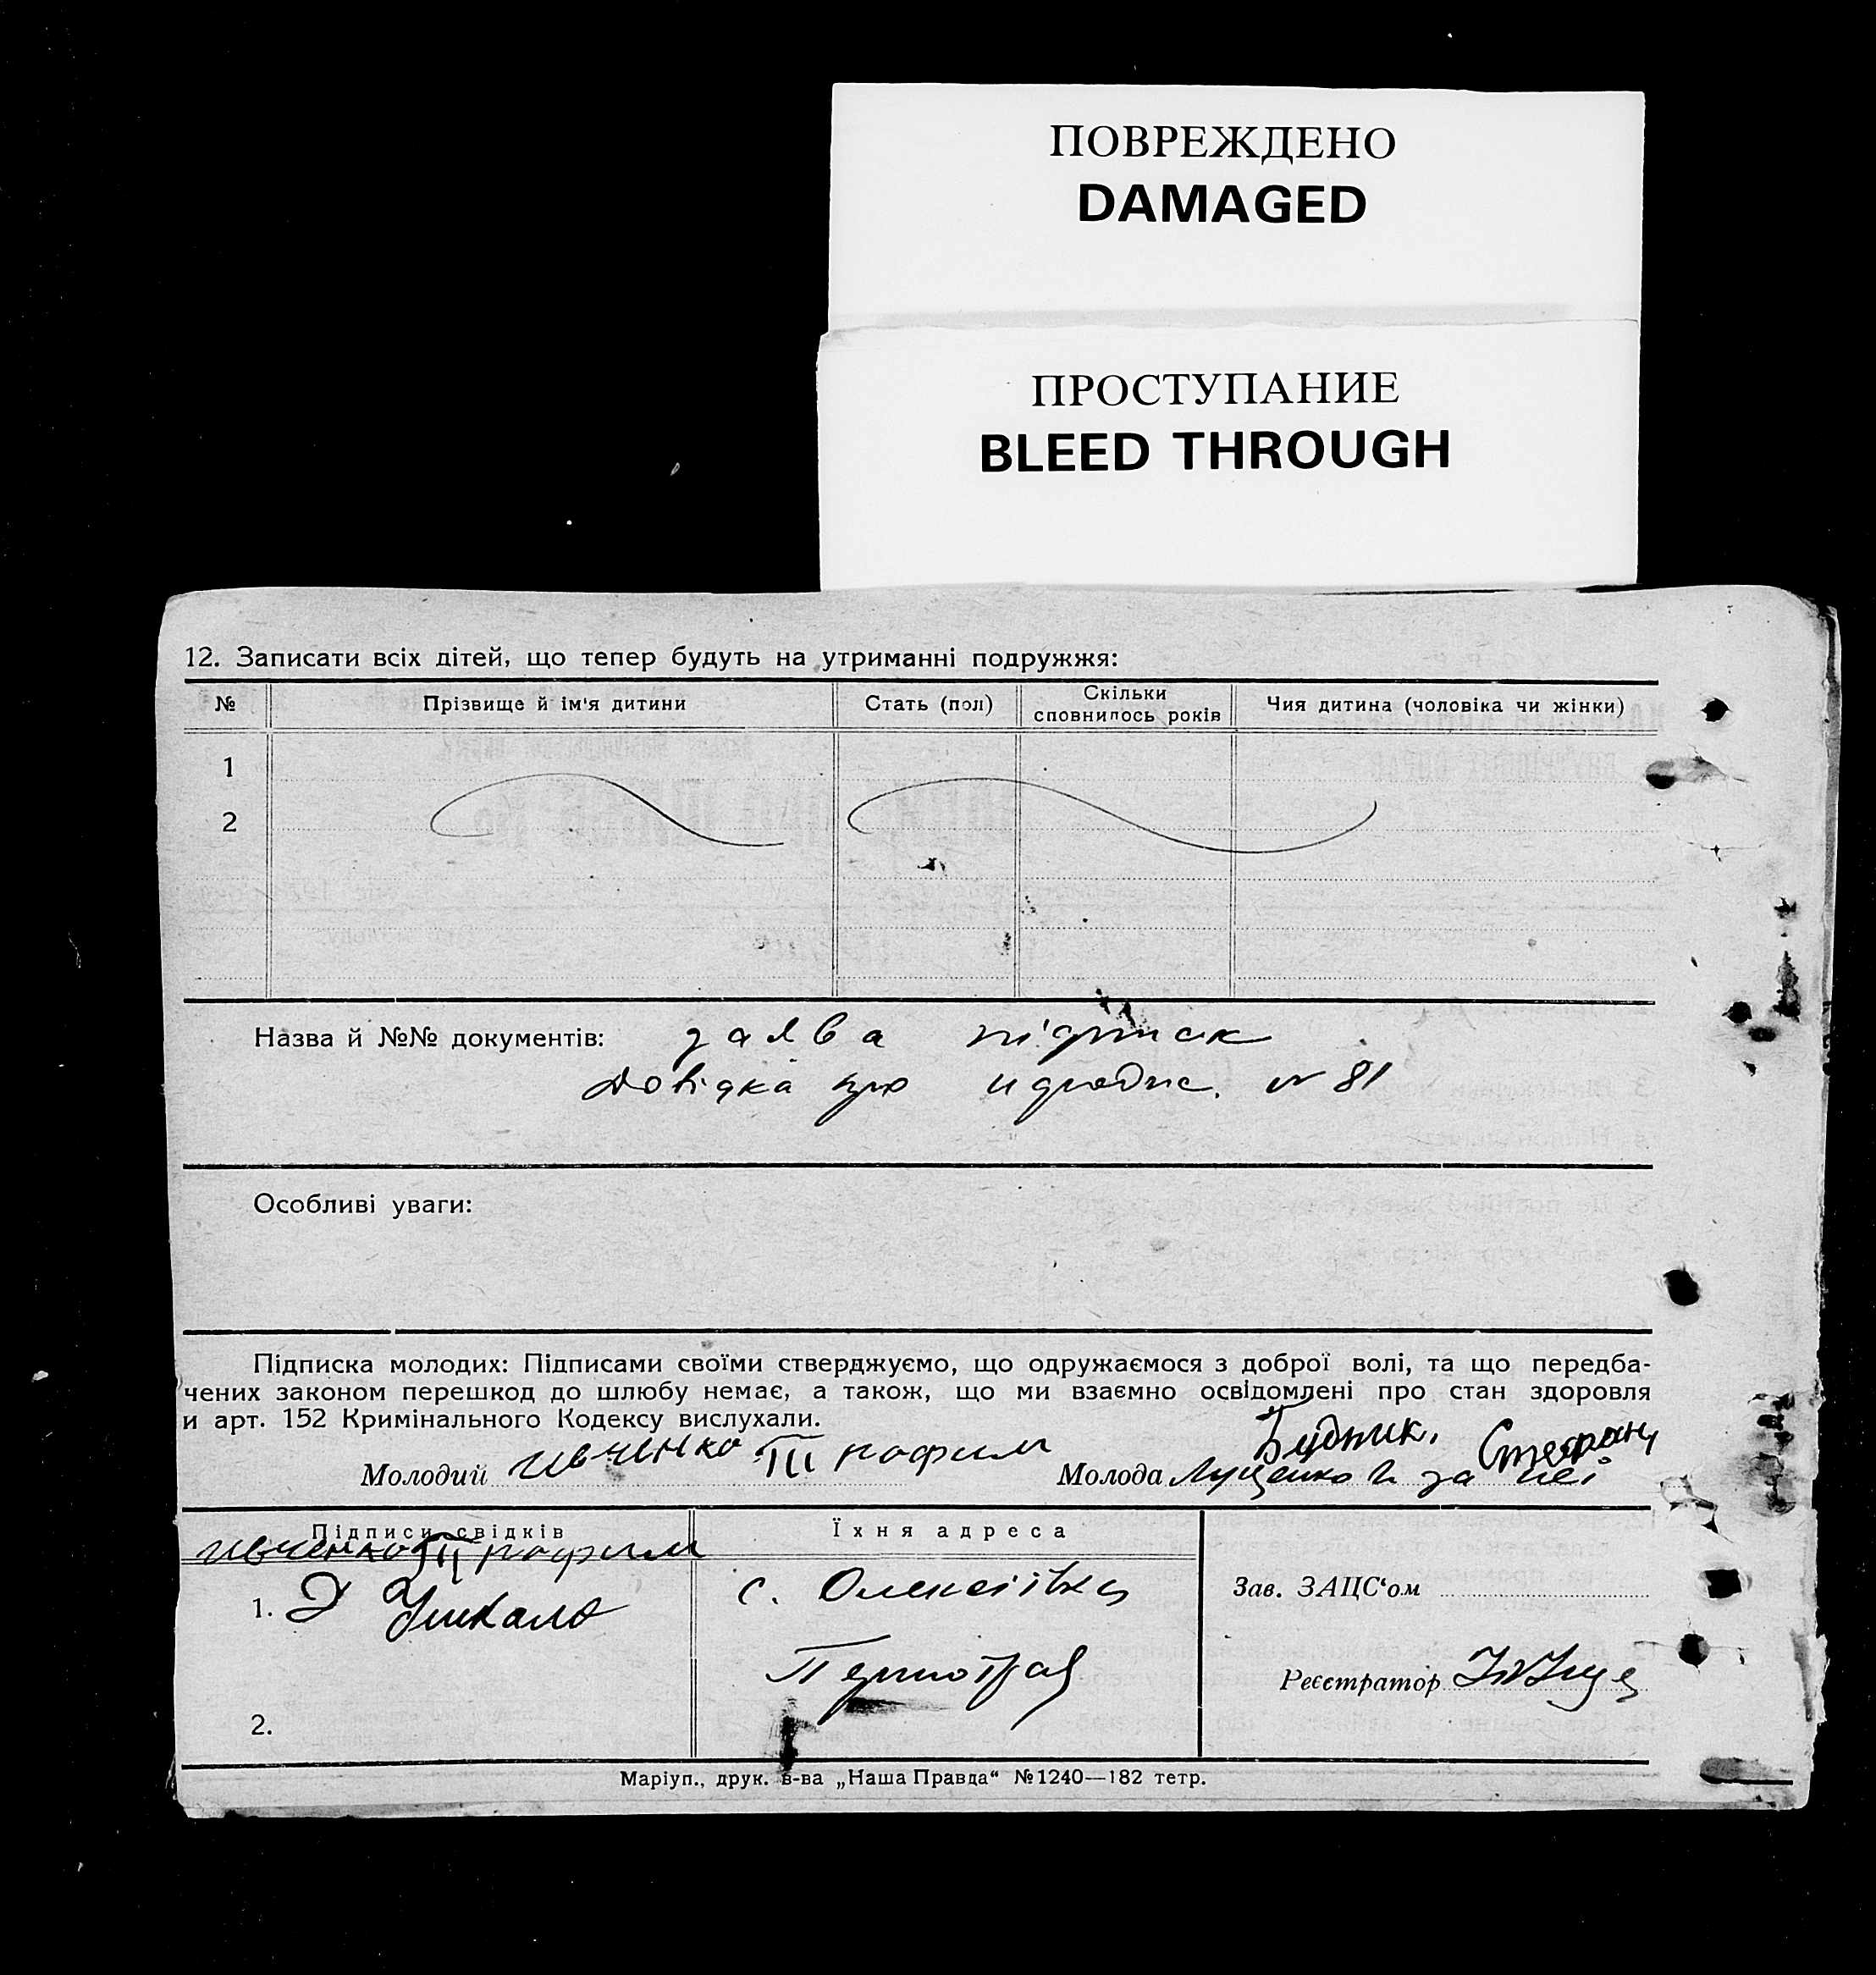 ПОВРЕЖДЕНО
DAMAGED
ПРОСТУПАНИЕ
BLEED THROUGH
12. Записати всіх дітей, що тепер будуть на утриманні подружжя:
№ Прізвище й ім'я дитини Стать (пол) Скільки сповнилось років Чия дитина (чоловіка чи жінки)
1
2
Назва й №№ документів: заява підписк
Довідка про № 81
Особливі уваги:
Підписка молодих: Підписами своїми стверджуємо, що одружаємося з доброї волі, та що передба-
чених законом перешкод до шлюбу немає, а також, що ми взаємно освідомлені про стан здоровля
и арт. 152 Кримінального Кодексу вислухали.
Будник. Стефан
Молодий Ивченко Трофим Молода Луценко за неї
Підписи свідків Їхня адреса
Ивченко Трофим
1. с. Олексіївка
Зав. ЗАЦС‘ом
Реєстратор
2.
Маріуп., друк. в-ва „Наша Правда“ №1240—182 тетр.